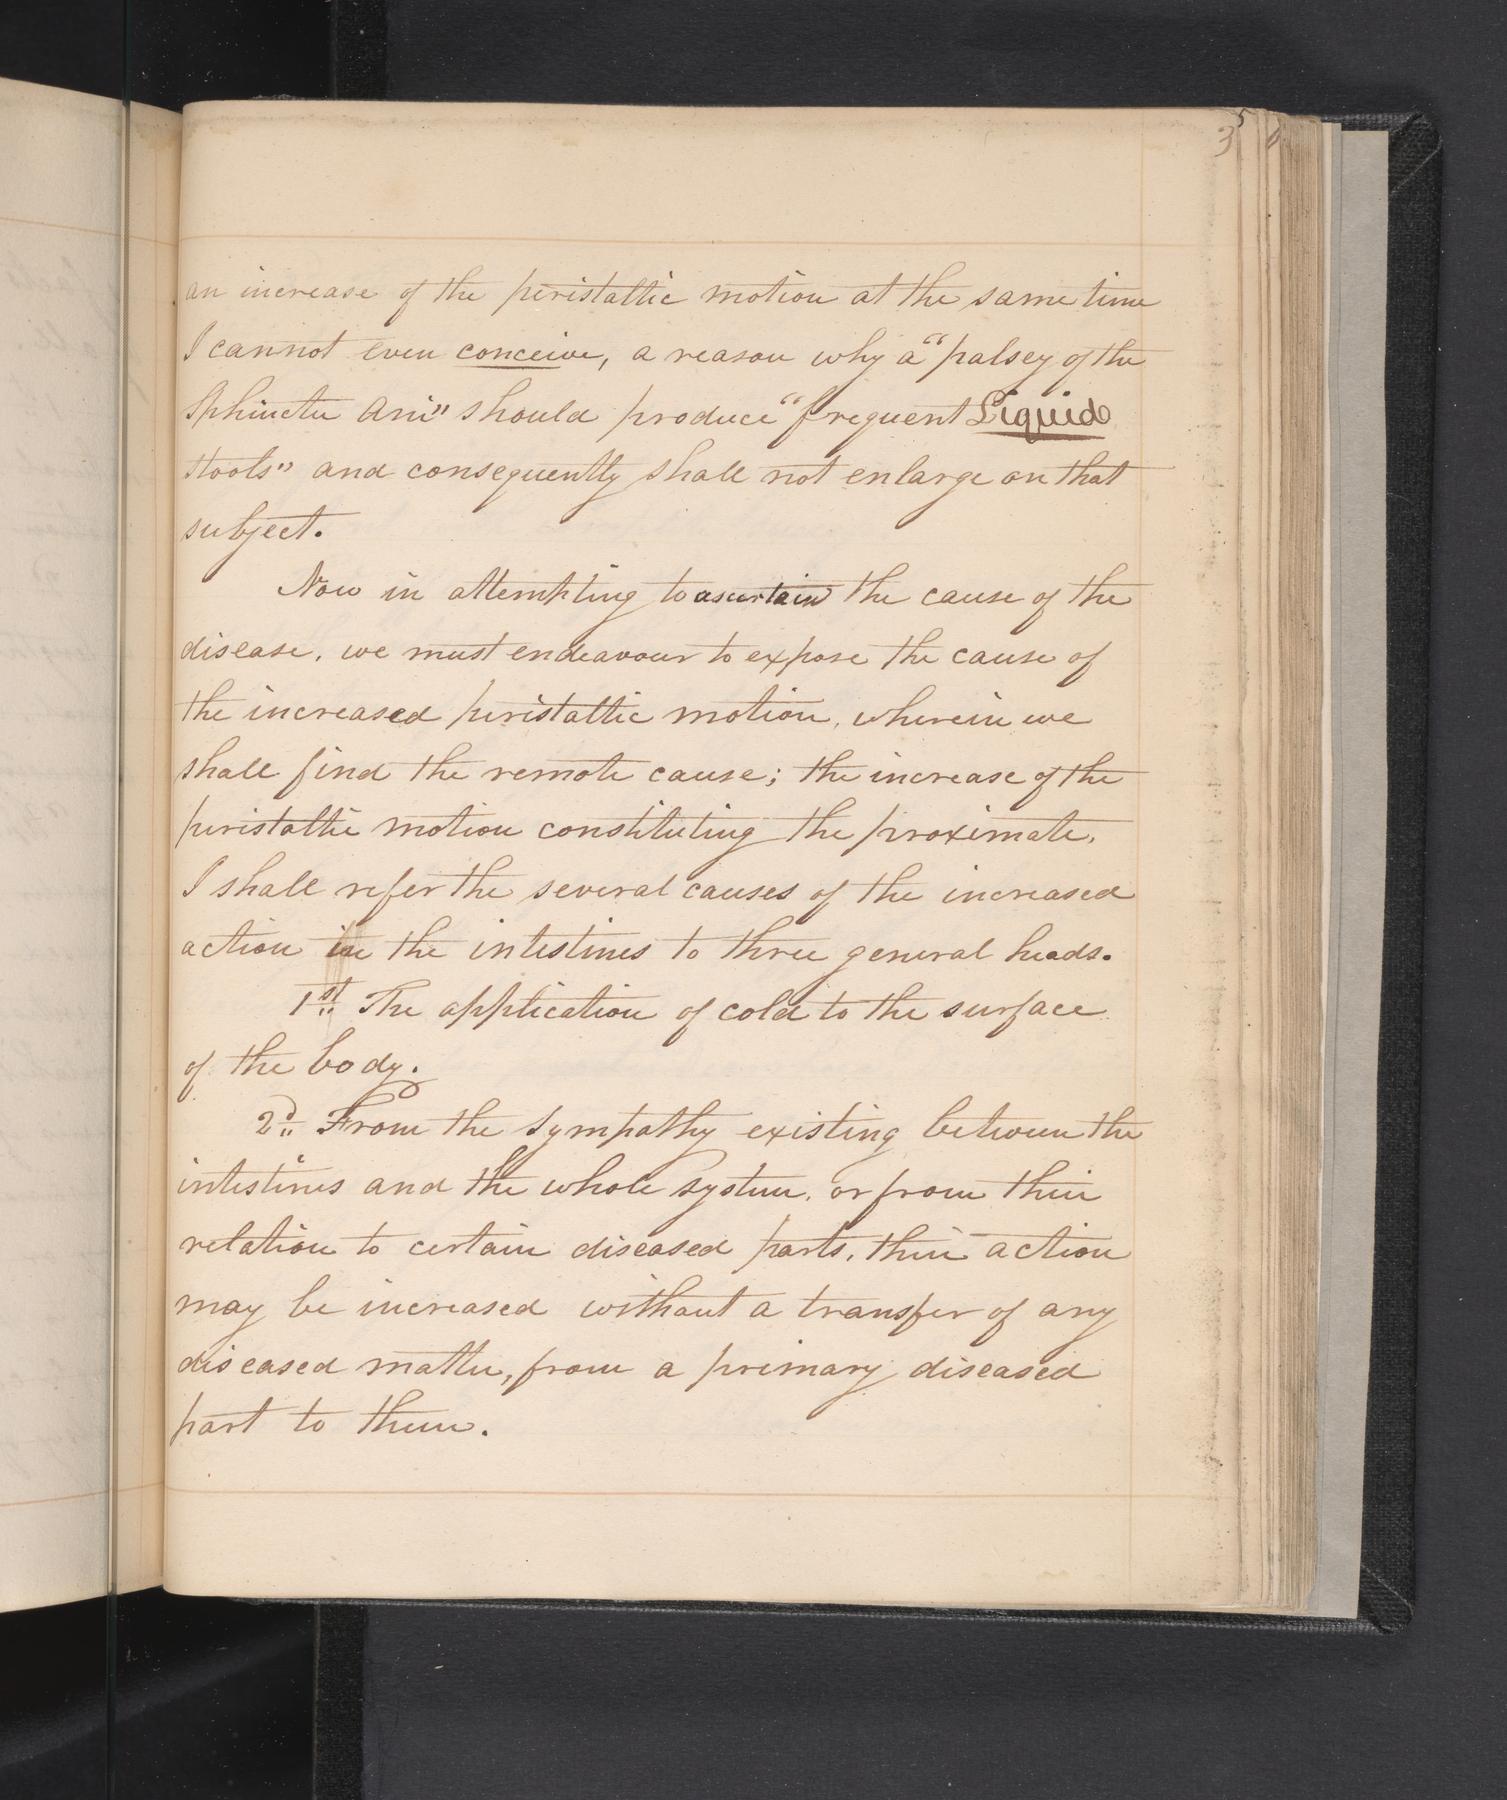 3
an increase of the peristaltic motion at the same time
I cannot even conceive, a reason why a "palsey of the
Sphincter Ani" should produce "frequent Liquid
stools" and consequently shall not enlarge on that
subject.
Now in attempting to ascertain the cause of the
disease, we must endeavour to expose the cause of
the increased peristaltic motion, wherein we
shall find the remote cause; the increase of the
peristaltic motion constituting the proximate.
I shall refer the several causes of the increased
action in the intestines to three general heads.
1st The application of cold to the surface
of the body.
2d From the sympathy existing between the
intestines and the whole system, or from their
relation to certain diseased parts, their action
may be increased without a transfer of any
diseased matter, from a primary diseased
part to them.